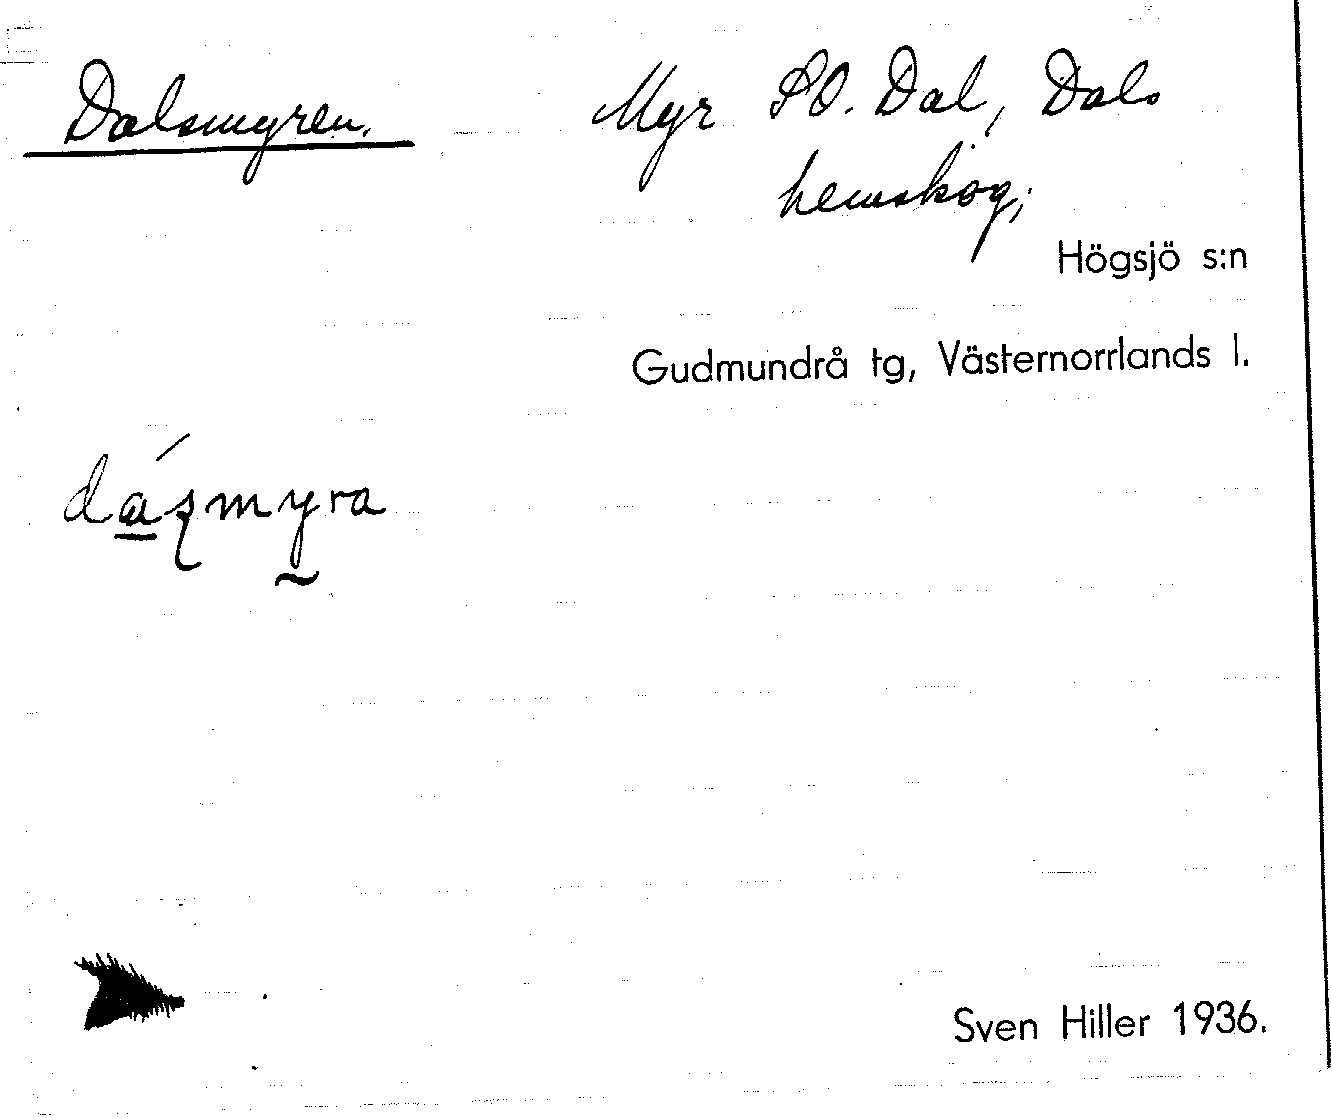 Dalsmyren. Myr SO. Dal, Dals
hemskog;
Högsjö s:n
Gudmundrå tg, Västernorrlands l.
Sven Hiller 1936.